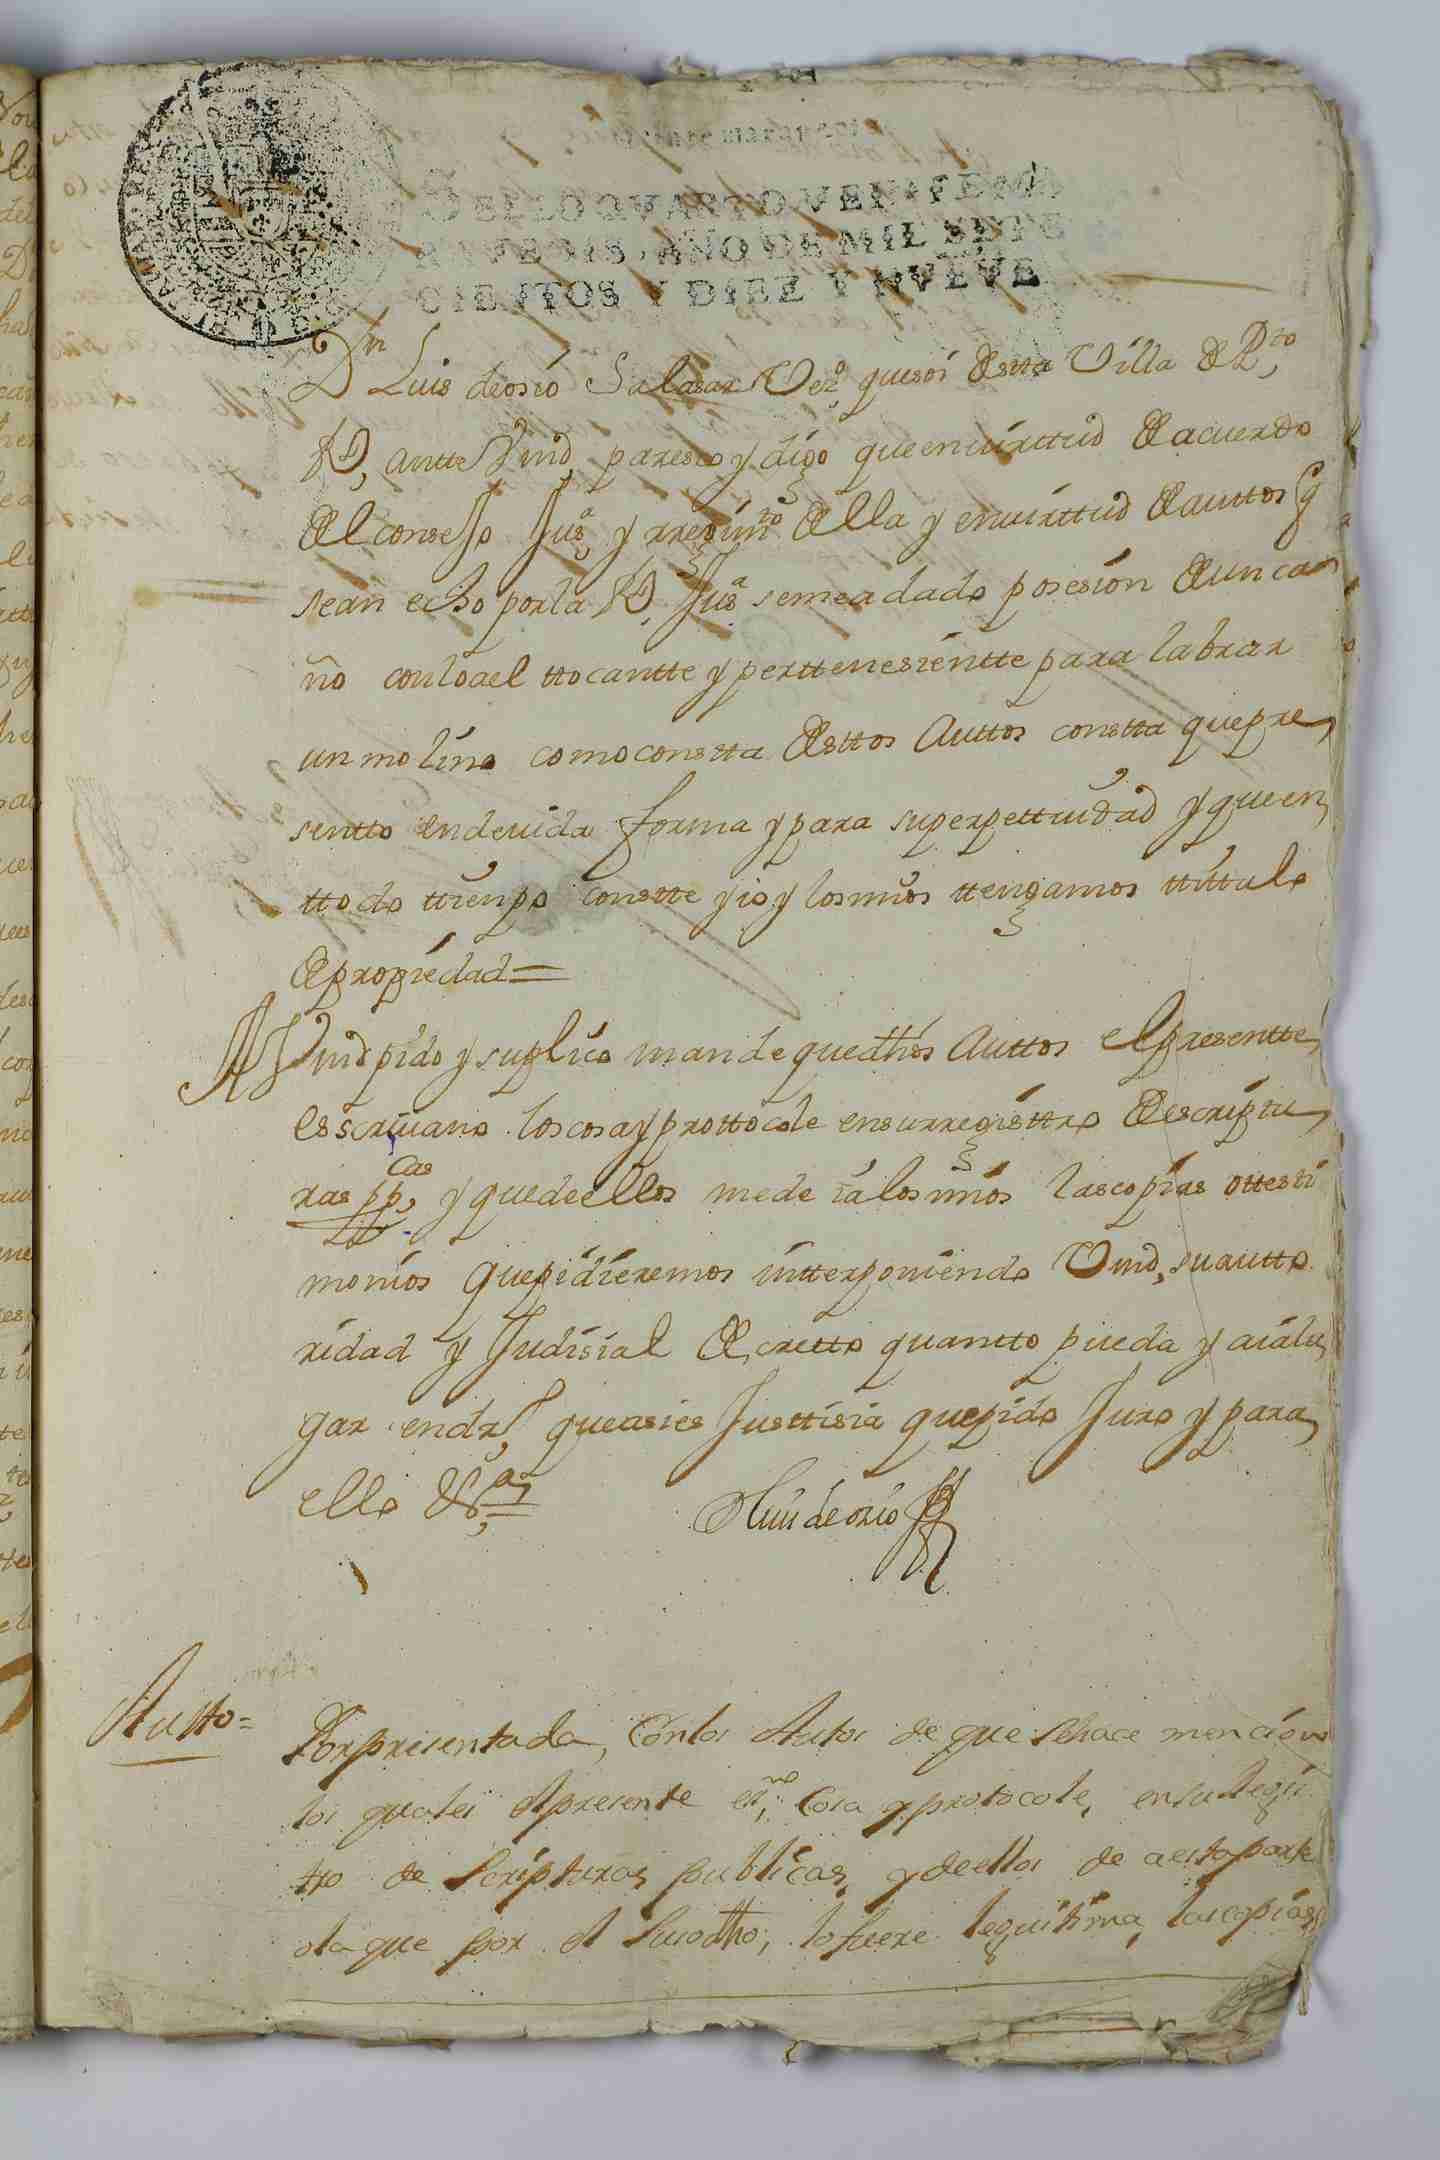 veinte maravedis
SELLO QVARTO VEINTE MA
RAVEDIS, AÑO DE MIL SETE
CIENTOS Y DIEZ Y NVEVE
Dn Luis deosio Salasar Vezo, quesoi de estta Villa de Pto
Rl, antte Vmd, paresco y digo que en virttud de acuerdo
del consejo Jusa, y rregimto de ella y en virttud de auttos q
sean echo por la Rl, Jusa se mea dado posesion de un ca
ño con lo a el ttocantte y perttenesientte para labrar
un molino como constta de esttos Auttos constta que pre
sentto en devida forma y para su perpettuidad y que en
ttodo ttienpo constte yio y los mios ttengamos tittulo
de propiedad=
A Vmd pido y suplico mande que dhos Auttos el presentte
esscrivano los cosa y prottocole en su rregisttro de escriptu
ras ppcas, y que de ellos me de i a los mios las copias o ttestti
monios que pidieremos intterponiendo Vmd, su autto
ridad y Judisial decretto quantto pueda y aia lu
gar en dro, que asi es Justtisia que pido Juro y para
ello &a=
Luis de osio
Autto=
Por presentada, Con los Autos de que se hace mencion
los quales el presente esno, Cosa y protocole, en su Regis
tro de Scripturas publicas, y de ellos de a esta parte
o la que por el suso dho, lo fuere lequitima, las copias